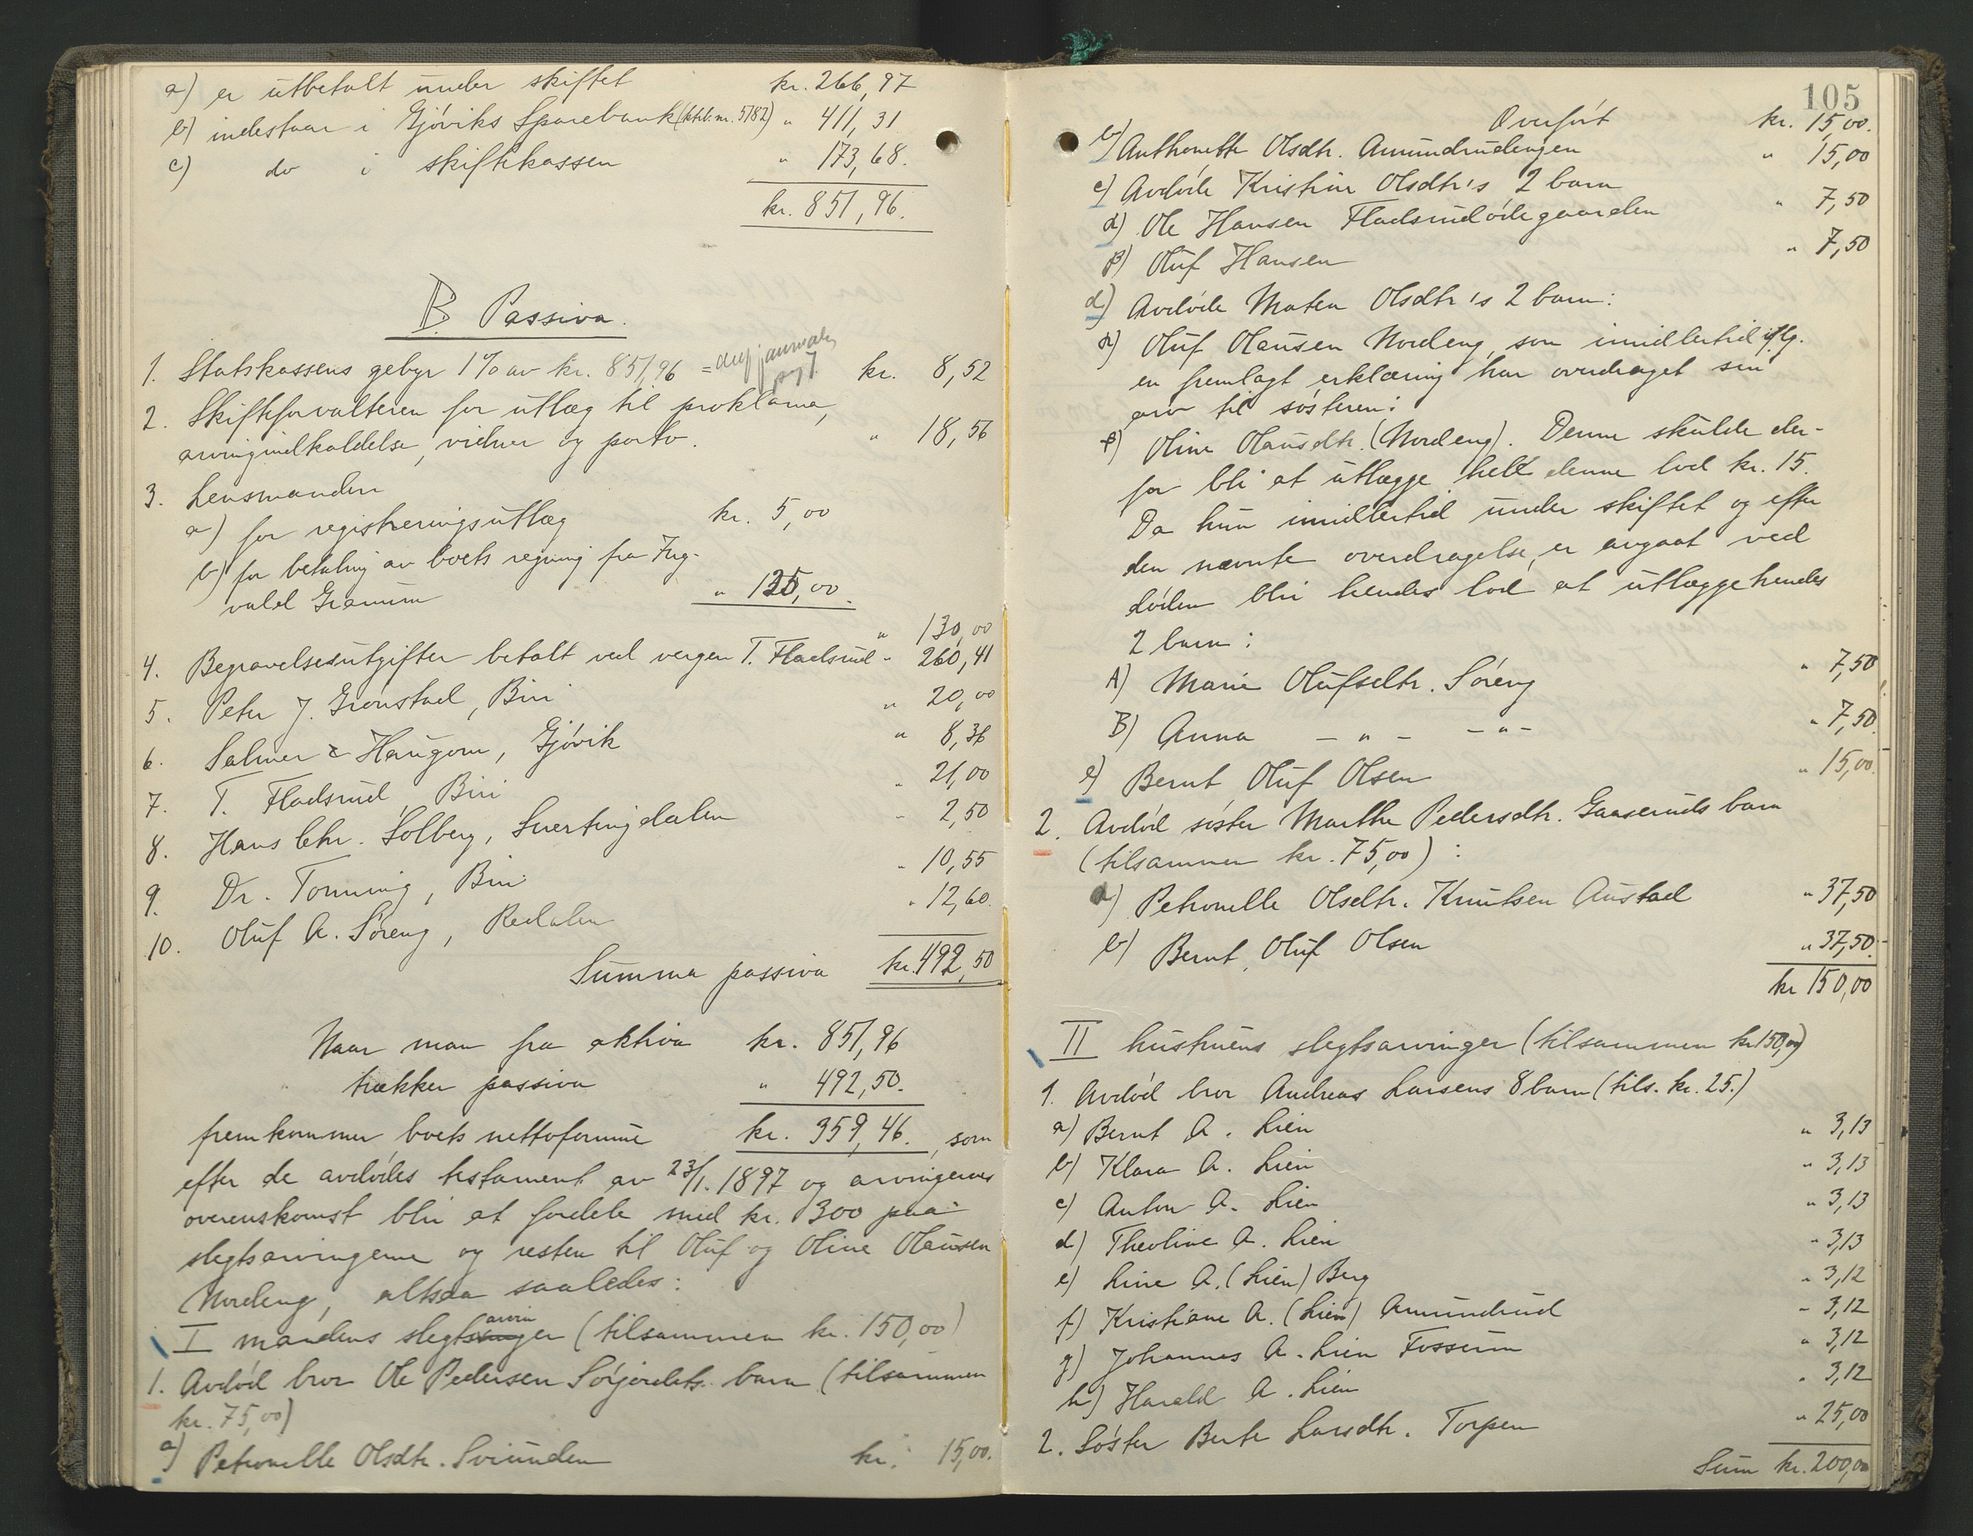 a) er utbetalt under skiftet kr. 266,97
b) indestaar i Gjøviks Sparebank (ktrb. nr. 5182) " 411,31
c) do i skiftekassen " 173,68.
kr. 851,96.
B Passiva.
1. Statskassens gebyr 1% av kr. 851,96 = kr. 8,52
2. Skifteforvalteren for utlæg til proklama,
arvingindkaldelse, vidner og porto. " 18,56
3. Lensmanden
a) for registreringsutlæg kr. 5,00
b) for betaling av boets regning fra Ing-
vald Granum " 125,00.
" 130,00
4. Begravelsesutgifter betalt ved vergen T. Fladsrud " 260,41
5. Peter J. Grønstad, Biri " 20,00
6. Salmer & Haugom, Gjøvik " 8,36
7. T. Fladsrud Biri " 21,00
8. Hans Chr. Solberg, Snertingdalen " 2,50
9. Dr. Tonning, Biri " 10,55
10. Oluf A. Søreng, Redalen " 12,60.
Summa passiva kr. 492,50
Naar man fra aktiva kr. 851,96
trækker passiva " 492,50.
fremkommer boets nettoformue kr. 359,46., som
efter de avdødes testament av 23/1. 1897 og arvingernes
overenskomst blir at fordele med kr. 300 paa
slegtsarvingerne og resten til Oluf og Oline Olausen
Nordeng, altsaa saaledes:
I mandens slegtsarvinger (tilsammen kr. 150,00)
1. Avdød bror Ole Pedersen Sørjordets barn (tilsammen
kr. 75,00)
a) Petronelle Olsdtr. Sviunden kr. 15,00.
105
Overført kr. 15,00.
b) Anthonette Olsdtr. Amundrudengen " 15,00
c) Avdøde Kristine Olsdtr's 2 barn
α) Ole Hansen Fladsrudødegaarden " 7,50
β) Oluf Hansen " 7,50
d) Avdøde Maten Olsdtr's 2 barn:
α) Oluf Olausen Nordeng, som imidlertid iflg.
en fremlagt erklæring har overdraget sin
arv til søsteren:
β) Oline Olausdtr. (Nordeng). Denne skulde der-
for bli at utlægge helt denne lod kr. 15.
Da hun imidlertid under skiftet og efter
den nævnte overdragelse, er avgaat ved
døden blir hendes lod at utlægge hendes
2 barn:
A) Marie Olufsdtr. Søreng " 7,50
B) Anna – " – – " – " 7,50
e) Bernt Oluf Olsen " 15,00.
2. Avdød søster Marthe Pedersdtr. Gaaseruds barn
(tilsammen kr. 75,00) :
a) Petronelle Olsdtr. Knutsen Austad " 37,50
b) Bernt Oluf Olsen " 37,50.
kr 150,00
II hustruens slegtsarvinger (tilsammen kr 150,00)
1. Avdød bror Andreas Larsens 8 barn (tils. kr. 25.)
a) Bernt A. Lien " 3,13
b) Klara A. Lien " 3,13
c) Anton A. Lien " 3,13
d) Theoline A. Lien " 3,13
e) Line A. (Lien) Berg " 3,12
f) Kristiane A. (Lien) Amundrud " 3,12
g) Johannes A. Lien Fossum " 3,12
h) Harald A. Lien " 3,12
2. Søster Berte Larsdtr. Torpen " 25,00
Sum kr. 200,00